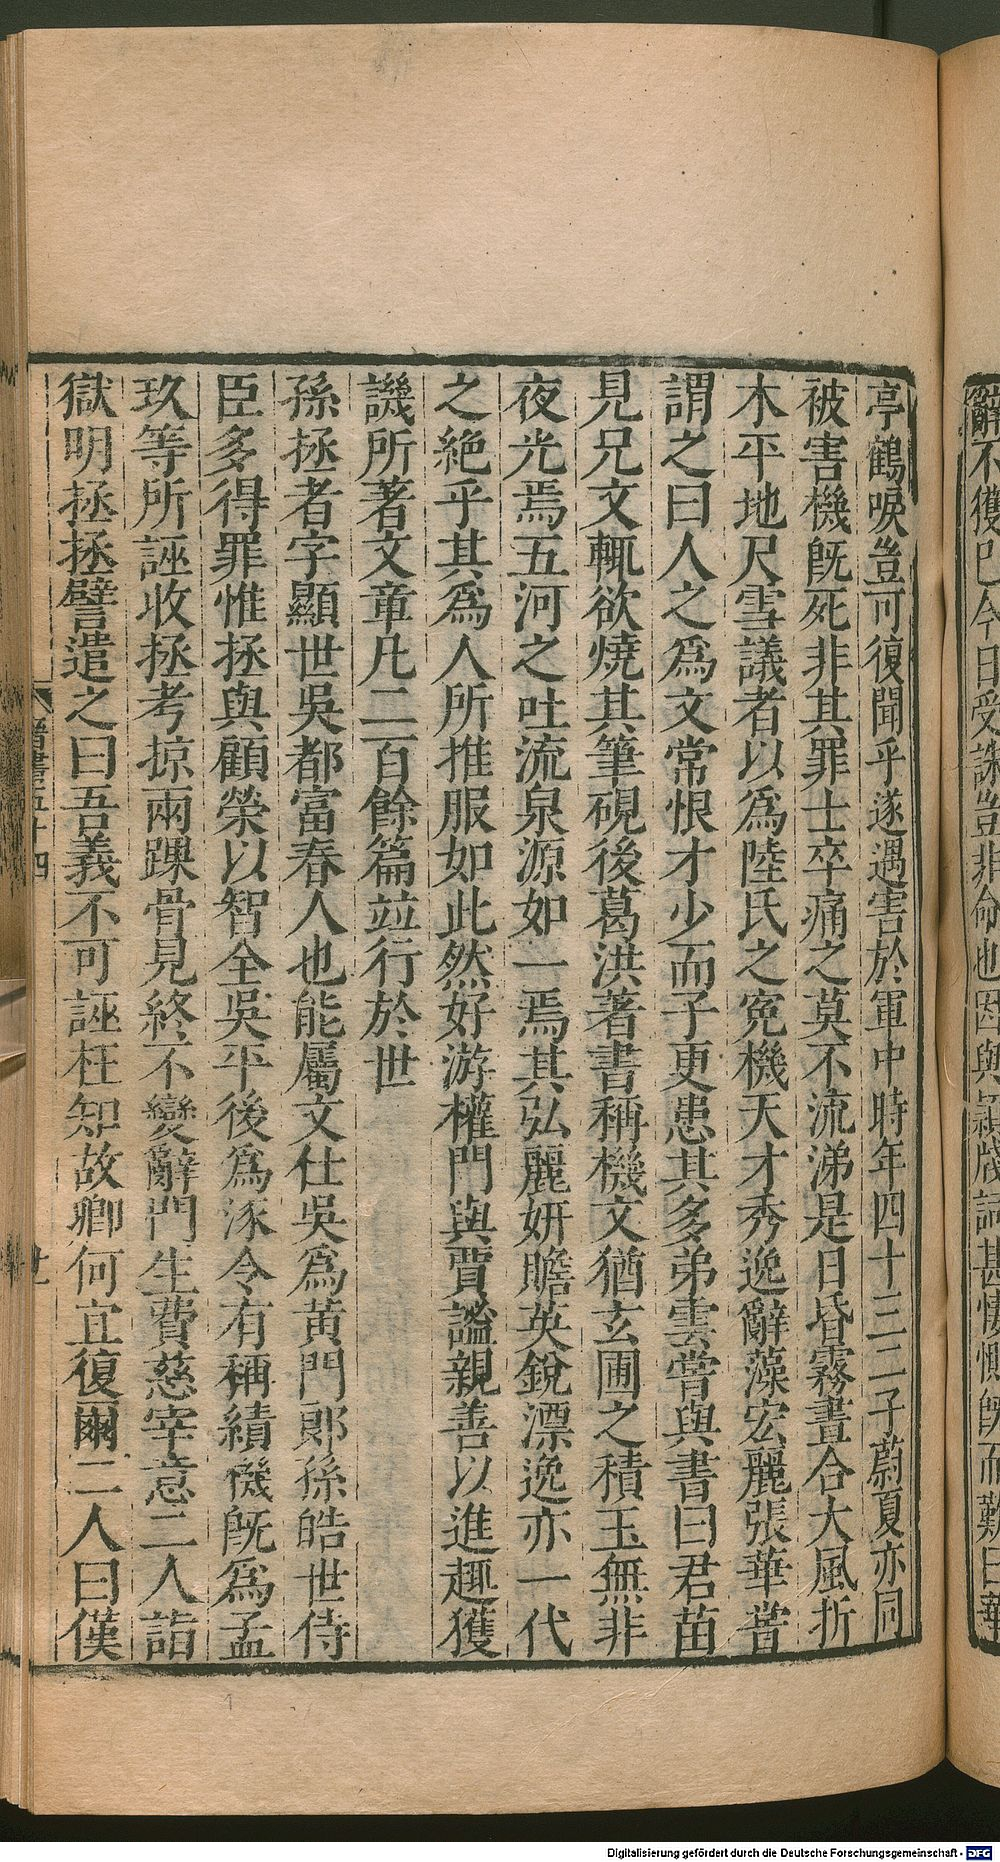 辭不獲已今日受誅豈非命也因與穎牋詞甚悽惻既而歎曰華
亭鶴唳豈可復聞乎遂遇害於軍中時年四十三二子蔚夏亦同
被害機旣死非其罪士卒痛之莫不流涕是日昏霧晝合大風折
木平地尺雪議者以爲陸氏之寃機天才秀逸辭藻宏麗張華甞
謂之曰人之爲文常恨才少而子更患其多弟雲甞與書曰君苗
見兄文輒欲燒其筆硯後葛洪著書稱機文猶玄圃之積玉無非
夜光焉五河之吐流泉源如一焉其弘麗妍贍英銳漂逸亦一代
之絶乎其爲人所推服如此然好游權門與賈謐親善以進趣獲
譏所著文章凡二百餘篇竝行於世
孫拯者字顯世吳都富春人也能屬文仕吳爲黃門郎孫皓世侍
臣多得罪惟拯與顧榮以智全吳平後爲涿令有稱績機旣爲孟
玖等所誣收拯考掠兩踝骨見終不變辭門生費慈宰意二人詣
獄明拯拯譬遣之曰吾義不可誣枉知故卿何宜復爾二人曰僕
晉書五十四
廿一
Digitalisierung gefördert durch die Deutsche Forschungsgemeinschaft - DFG